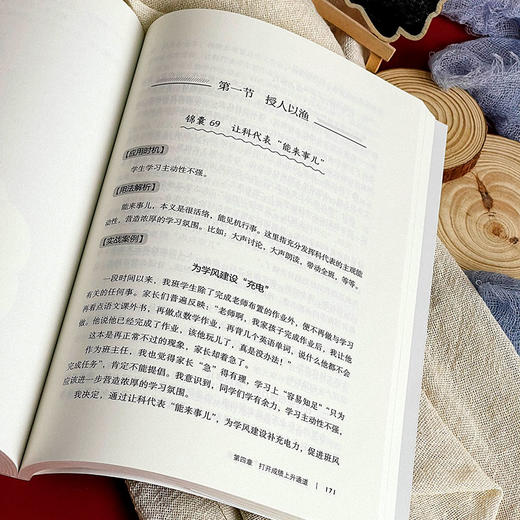 第一节 授人以渔
锦囊 69 让科代表“能来事儿”
【应用时机】
学生学习主动性不强。
【用法解析】
能来事儿，本义是很活络，能见机行事，这里指充分发挥科代表的主观能
动性，营造浓厚的学习氛围。比如：大声讨论，大声朗读，带动全班，等等。
【实战案例】
为学风建设“充电”
一段时间以来，我班学生除了完成老师布置的作业外，便不再做与学习
有关的任何事。家长们普遍反映：“老师啊，我家孩子完成作业后，我让他
再看点语文课外书，再做点数学作业，再背几个英语单词，说什么他都不会
做。他说他已经完成了作业，该他玩儿了，真是没办法！”
这本是再正常不过的现象，家长却着急了。
作为班主任，我也觉得家长“急”得有理，学习上“容易知足”“只为
完成任务”，肯定不能提倡。我意识到，同学们学有余力，学习主动性不强，
应该进一步营造浓厚的学习氛围。
我决定，通过让科代表“能来事儿”，为学风建设补充电力，促进班风
第四章 打开成绩上升通道 171